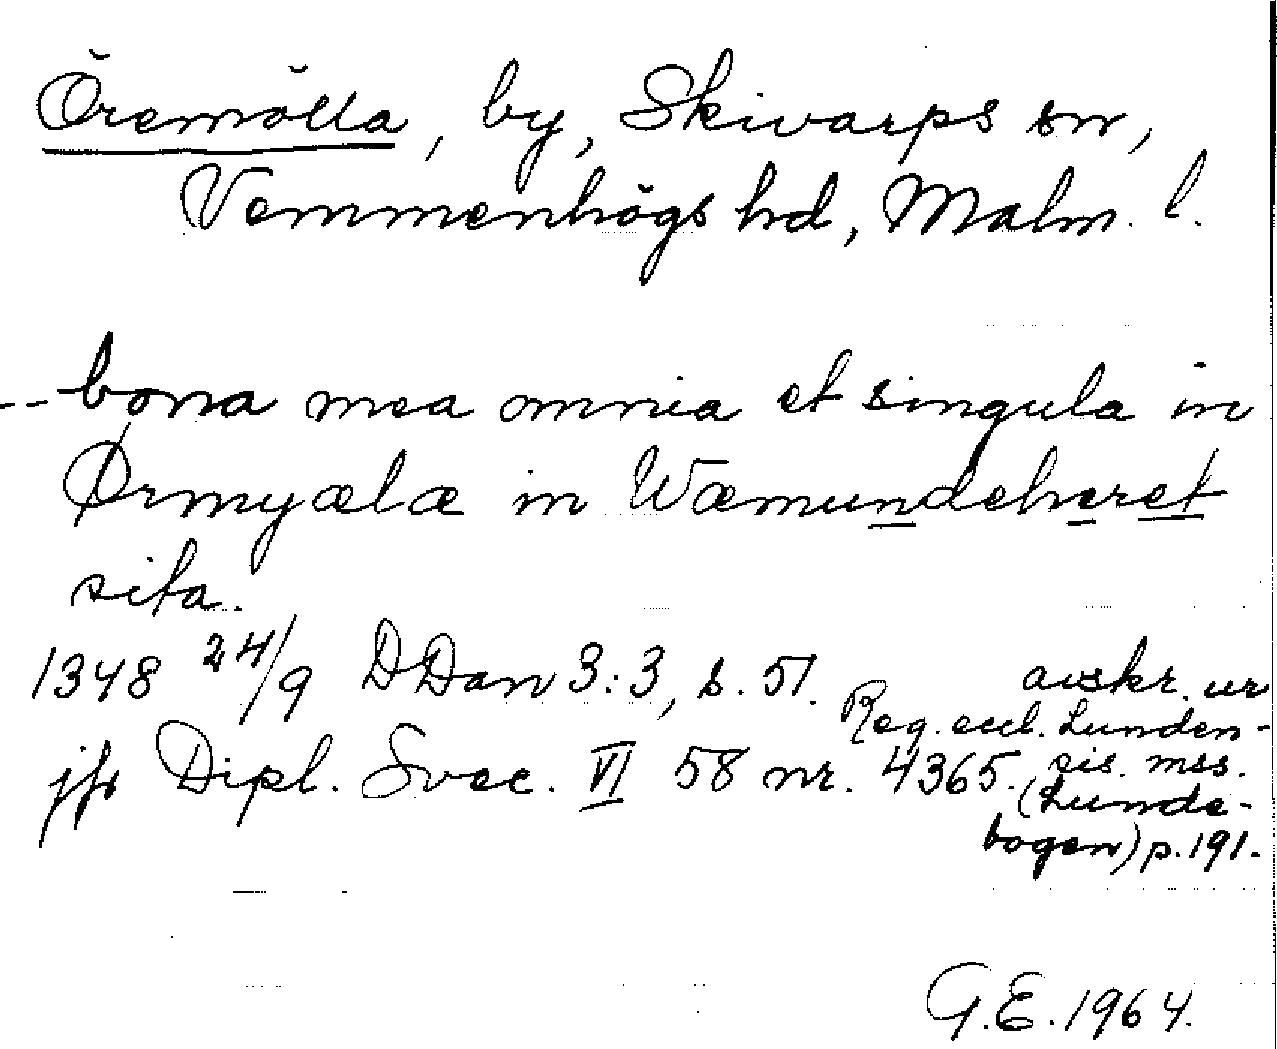 Öremölla, by, Skivarps sn,
Vemmenhögs hd, Malm. l.
-- bona mea omnia et singula in
Ørmyælæ in Wæmundeheret
sita.
1348 24/9 DDan 3:3, s. 51. avskr. ur
Reg. eccl. Lunden-
jfr Dipl. Svec. VI 58 nr. 4365. sis. mss.
(Lunde-
bogen) p. 191.
G.E. 1964.